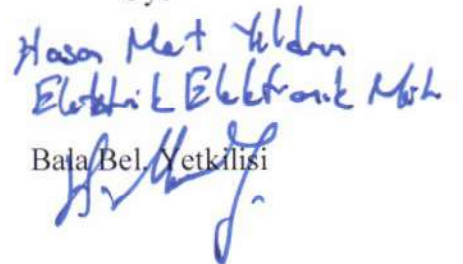 Hasan Mert Yıldırım
Elektrik Elektronik Müh.
Bala Bel. Yetkilisi